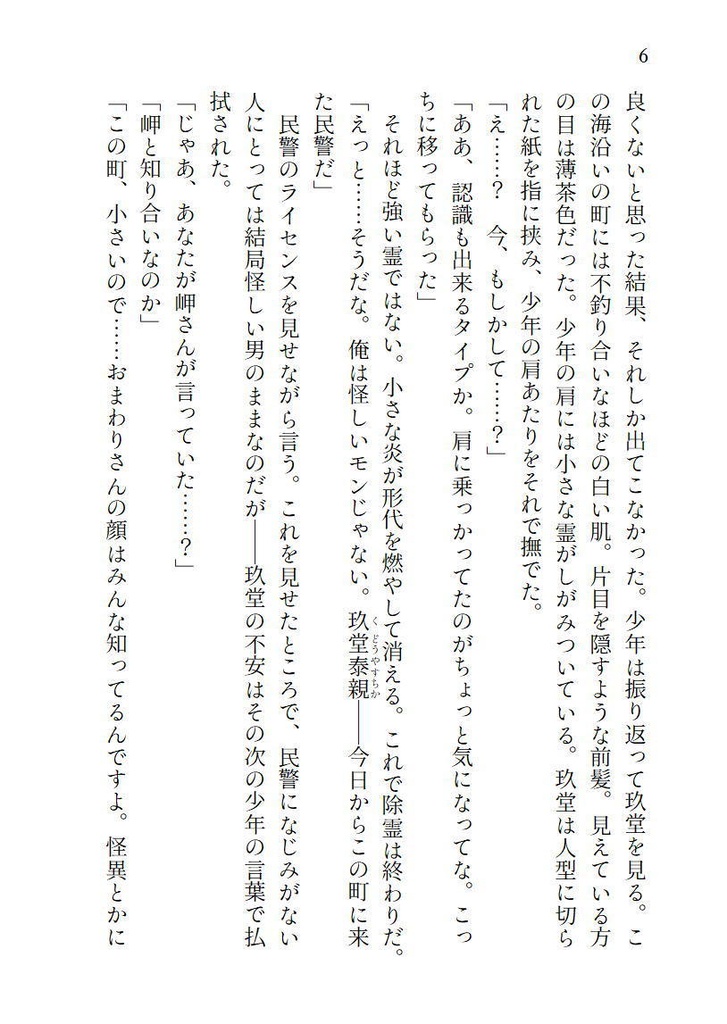 6
良くないと思った結果、それしか出てこなかった。少年は振り返って玖堂を見る。こ
の海沿いの町には不釣り合いなほどの白い肌。片目を隠すような前髪。見えている方
の目は薄茶色だった。少年の肩には小さな霊がしがみついている。玖堂は人型に切ら
れた紙を指に挟み、少年の肩あたりをそれで撫でた。
「え……?　今、もしかして……?」
「ああ、認識も出来るタイプか。肩に乗っかってたのがちょっと気になってな。こっ
ちに移ってもらった」
　それほど強い霊ではない。小さな炎が形代を燃やして消える。これで除霊は終わりだ。
「えっと……そうだな。俺は怪しいモンじゃない。玖堂泰親――今日からこの町に来
くどうやすちか
た民警だ」
　民警のライセンスを見せながら言う。これを見せたところで、民警になじみがない
人にとっては結局怪しい男のままなのだが――玖堂の不安はその次の少年の言葉で払
拭された。
「じゃあ、あなたが岬さんが言っていた……?」
「岬と知り合いなのか」
「この町、小さいので……おまわりさんの顔はみんな知ってるんですよ。怪異とかに